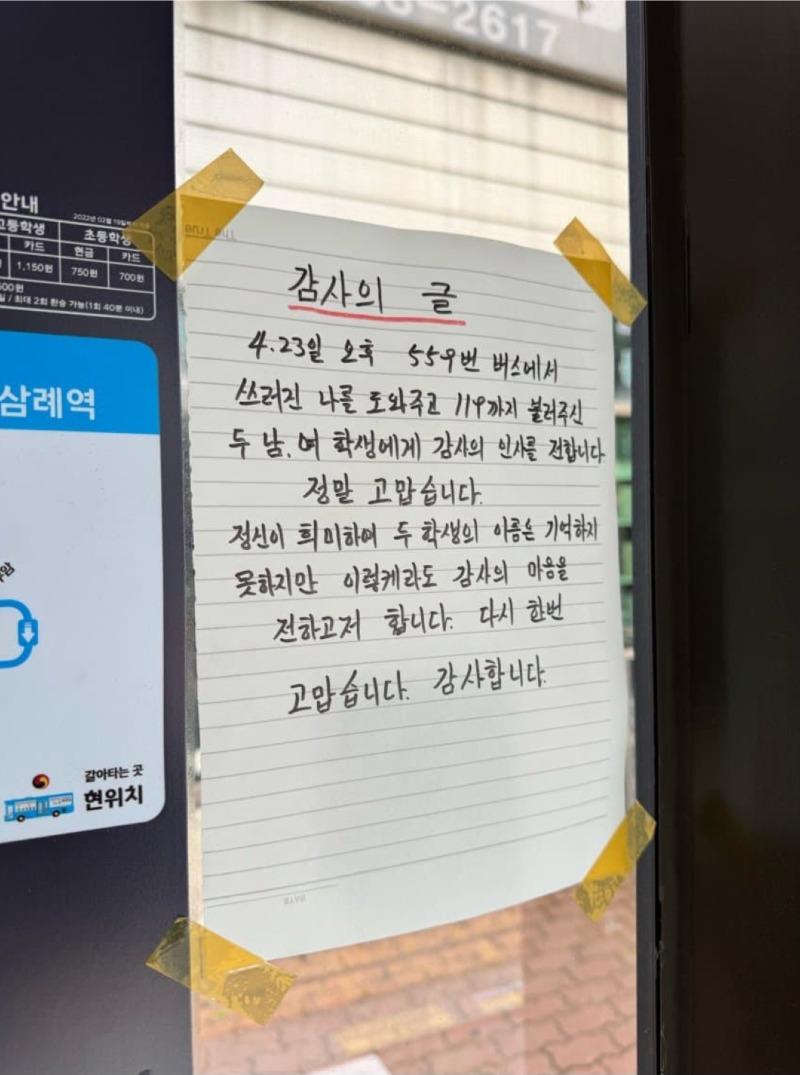 8-2617
안내
2022년 02월 19일
고등학생 초등학생
카드 현금 카드
1,150원 750원 700원
500원
일 / 최대 2회 환승 가능(1회 40분 이내)
삼례역
갈아타는 곳
현위치
감사의 글
4.23일 오후 559번 버스에서
쓰러진 나를 도와주고 119까지 불러주신
두 남,여 학생에게 감사의 인사를 전합니다.
정말 고맙습니다.
정신이 희미하여 두 학생의 이름은 기억하지
못하지만 이렇케라도 감사의 마음을
전하고저 합니다. 다시 한번
고맙습니다. 감사합니다.
DATE